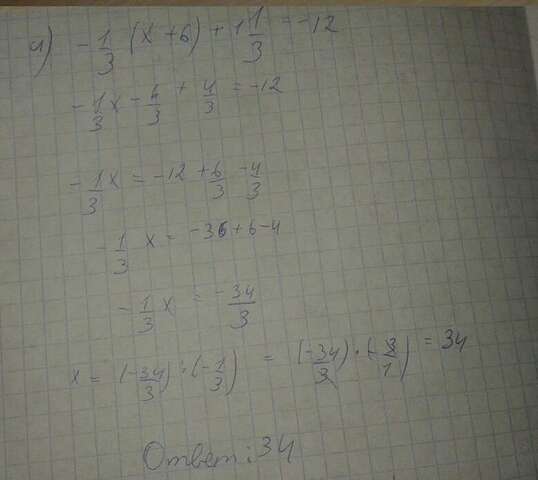 4) -1/3 (x + 6) + 1 1/3 = -12
-1/3 x - 6/3 + 4/3 = -12
-1/3 x = -12 + 6/3 - 4/3
-1/3 x = -36 + 6 - 4
-1/3 x = -34/3
x = (-34/3) : (-1/3) = (-34/3) · (-3/1) = 34
Ответ: 34